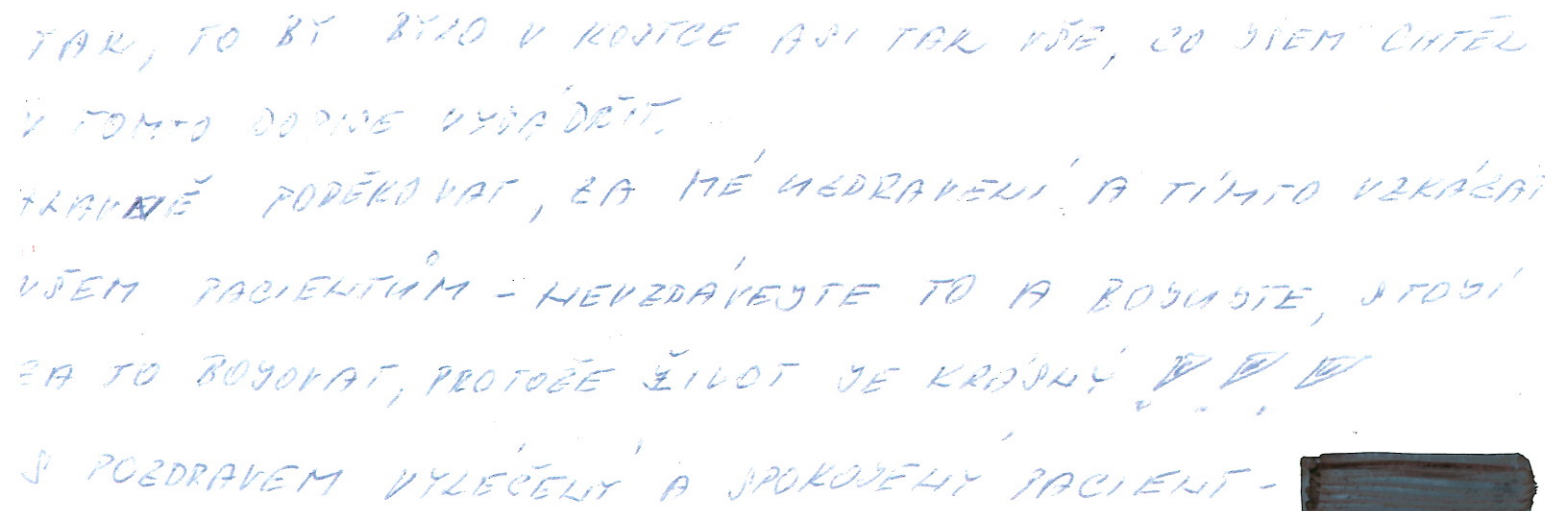 TAK, TO BY BYLO V KOSTCE ASI TAK VŠE, CO JSEM CHTĚL
V TOMTO DOPISE VYJÁDŘIT.
HLAVNĚ PODĚKOVAT, ZA MÉ UZDRAVENÍ A TÍMTO VZKÁZAT
VŠEM PACIENTŮM - NEVZDÁVEJTE TO A BOJUJTE, STOJÍ
ZA TO BOJOVAT, PROTOŽE ŽIVOT JE KRÁSNÝ !!!
S POZDRAVEM VYLÉČENÝ A SPOKOJENÝ PACIENT -